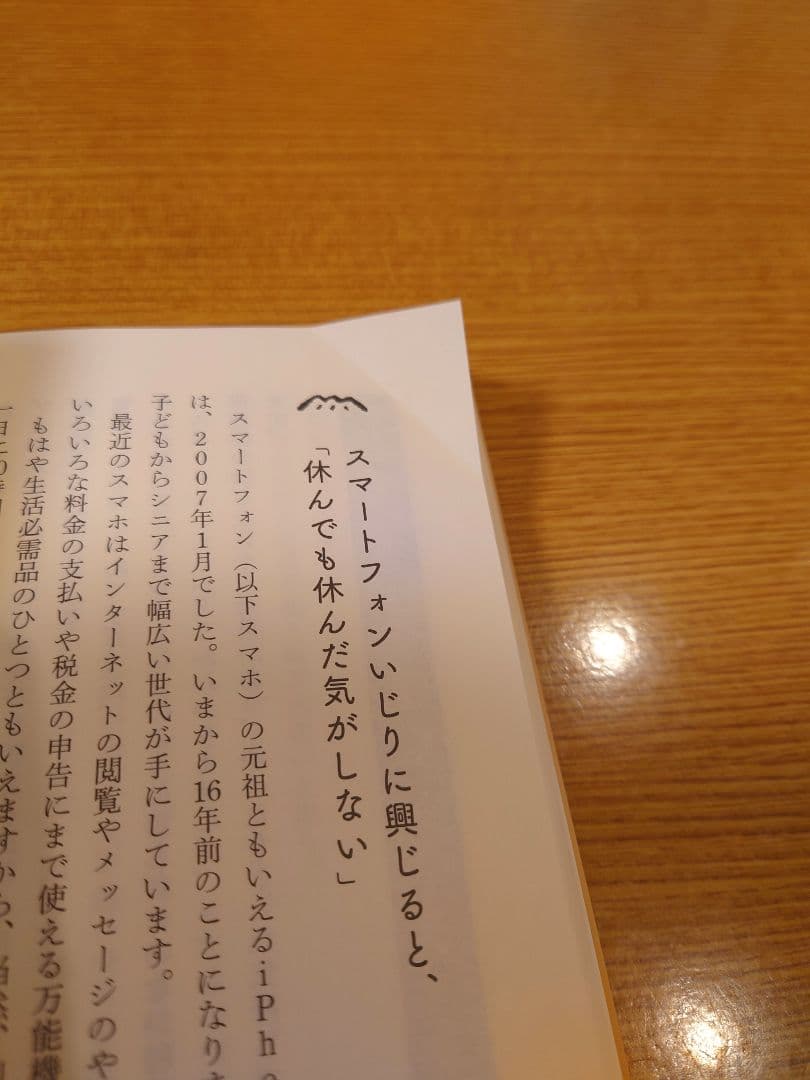 スマートフォンいじりに興じると、
「休んでも休んだ気がしない」
スマートフォン（以下スマホ）の元祖ともいえるiPh
は、2007年1月でした。いまから16年前のことになり
子どもからシニアまで幅広い世代が手にしています。
最近のスマホはインターネットの閲覧やメッセージのや
いろいろな料金の支払いや税金の申告にまで使える万能機
もはや生活必需品のひとつともいえますから、